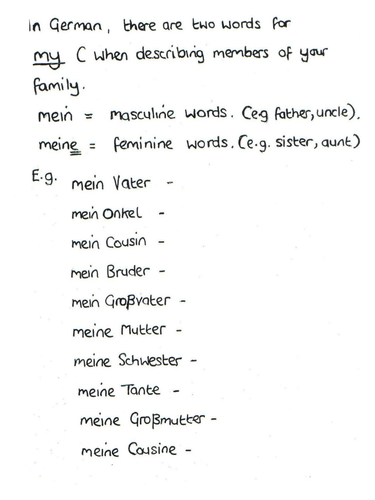 in German, there are two words for
my C when describing members of your
family.
mein = masculine words. (eg father, uncle).
meine = feminine words. (e.g. sister, aunt)
E.g. mein Vater -
mein Onkel -
mein Cousin -
mein Bruder -
mein Großvater -
meine Mutter -
meine Schwester -
meine Tante -
meine Großmutter -
meine Cousine -